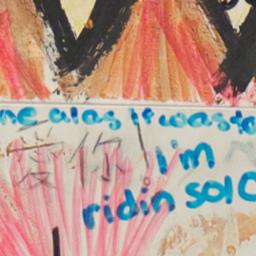 alas it was to
爱你!
I'm
ridin solo